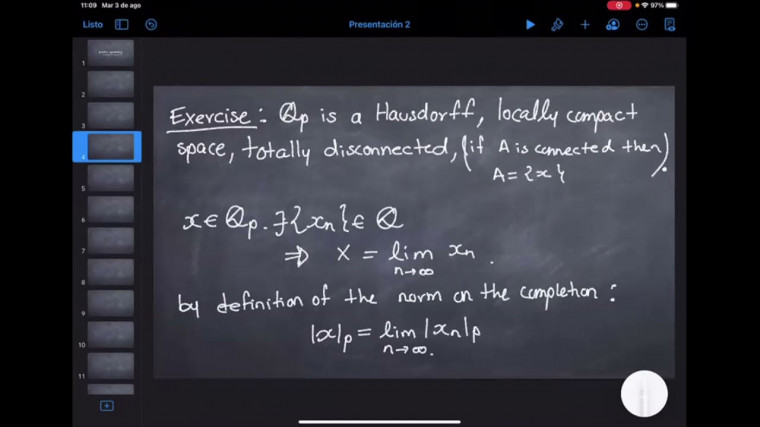 11:09 Mar 3 de ago
97%
Listo
Presentación 2
Exercise: ℚp is a Hausdorff, locally compact
space, totally disconnected, (if A is connected then
A = {x}).
x ∈ ℚp. ∃{xn} ∈ ℚ
⇒ x = lim xn.
n→∞
by definition of the norm on the completion:
|x|p = lim |xn|p
n→∞.
1
2
3
4
5
6
7
8
9
10
11